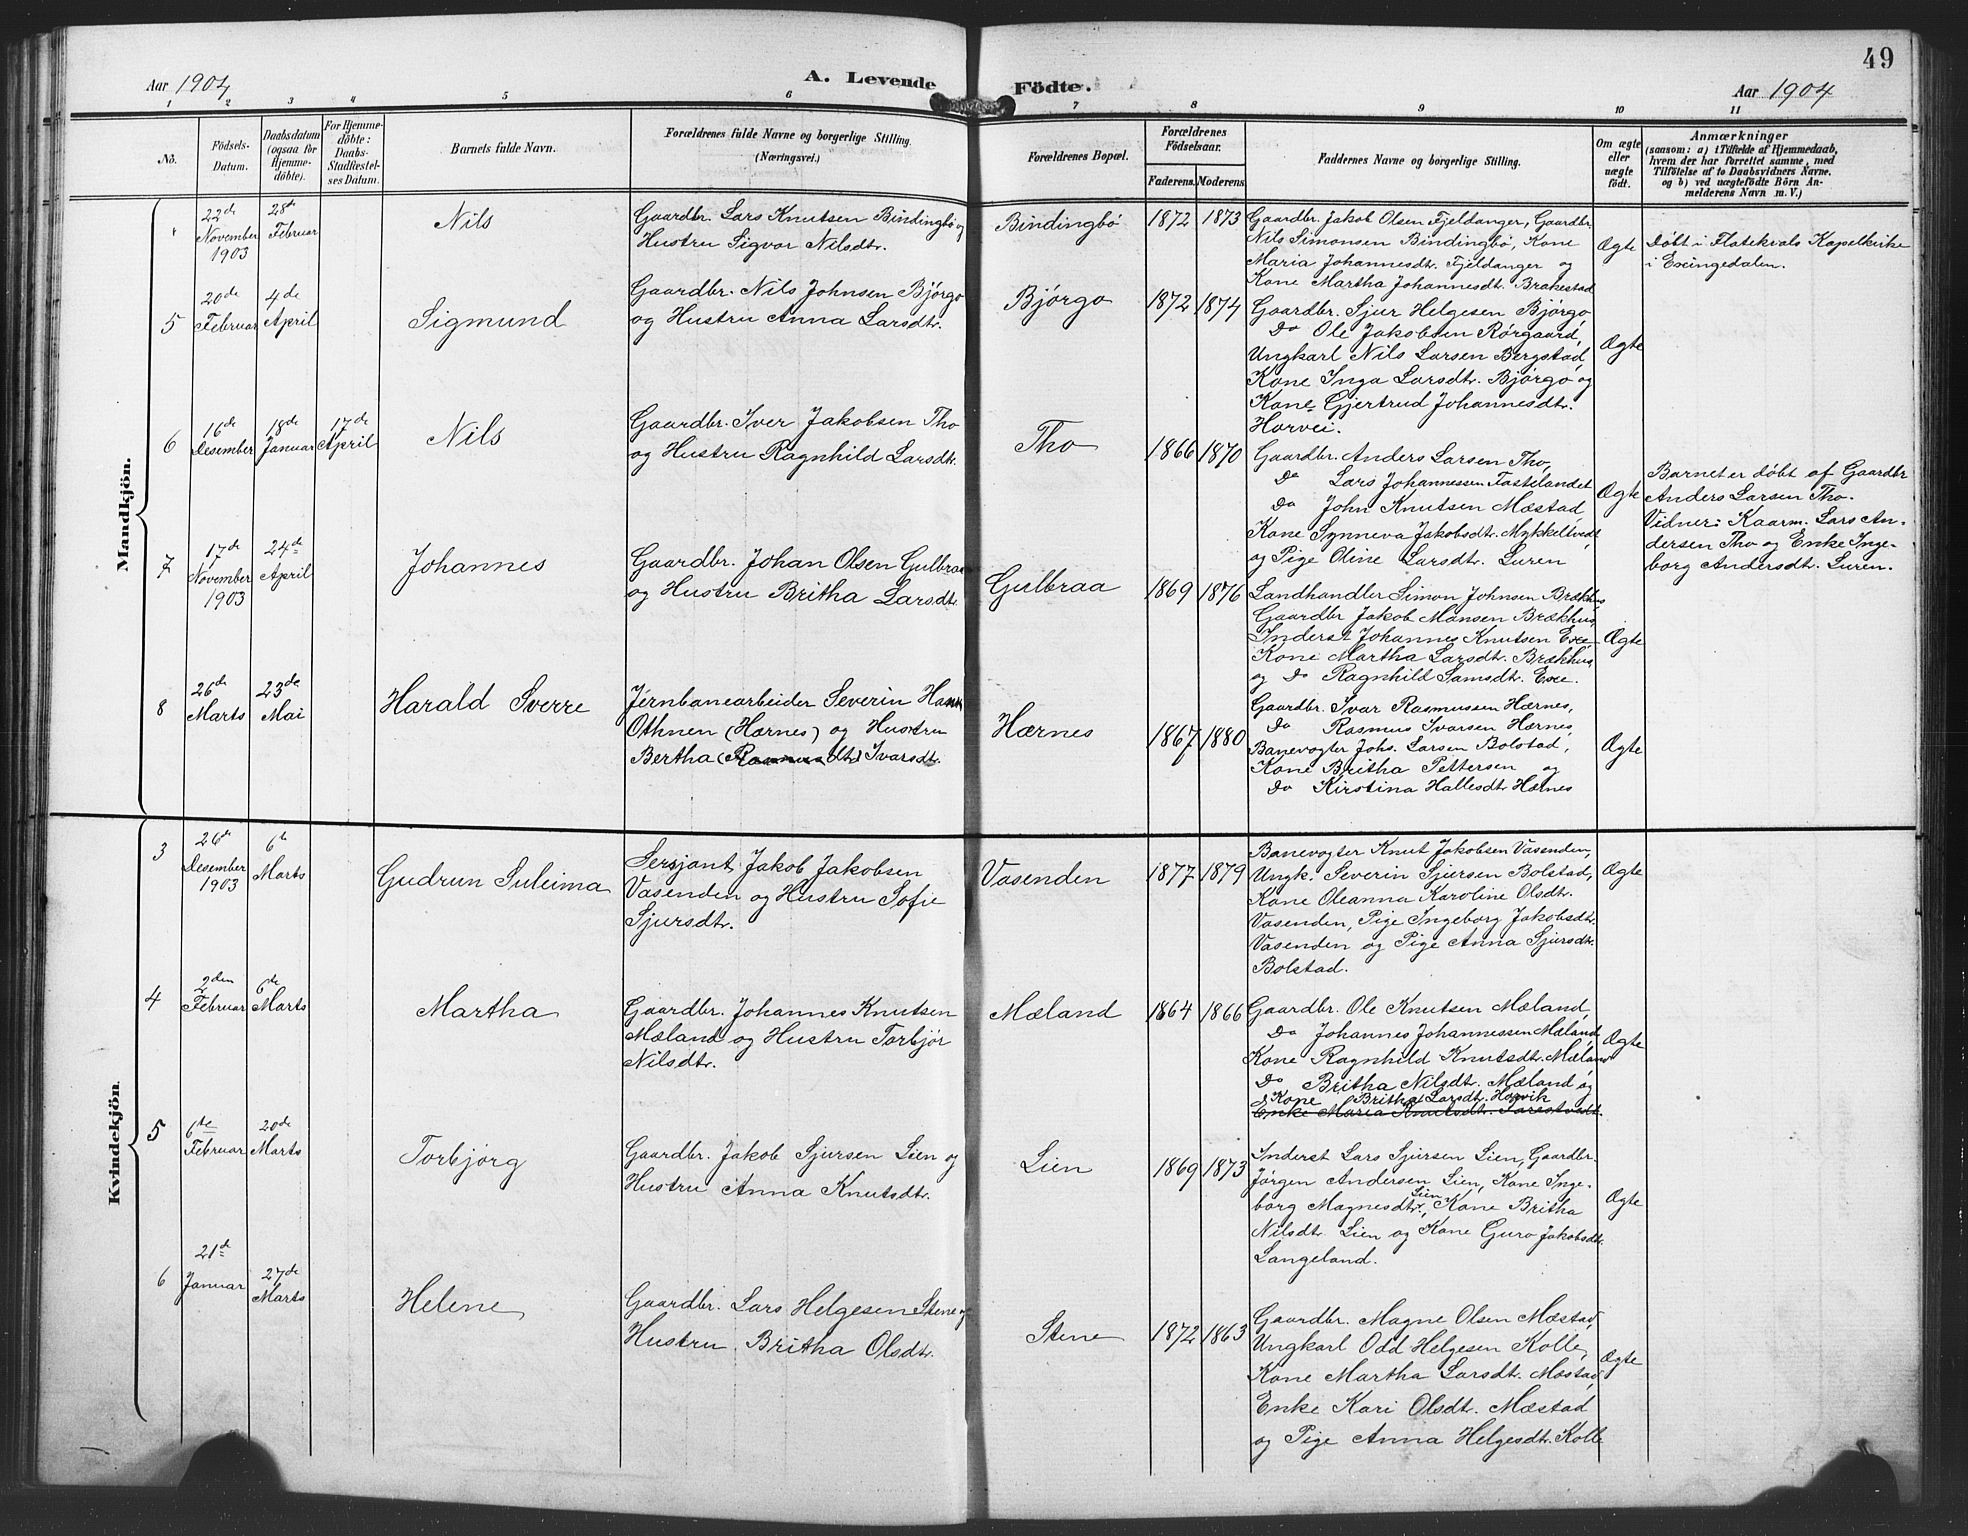 49
Aar 1904
A. Levende Födte.
Aar 1904
1 2 3 4 5 6 7 8 9 10 11
Nô.
Födsels-
Datum.
Daabsdatum
(ogsaa for
Hjemme-
döbte).
For Hjemme-
döbte:
Daabs-
Stadfæstel-
ses Datum.
Barnets fulde Navn.
Forældrenes fulde Navne og borgerlige Stilling.
(Næringsvei.)
Forældrenes Bopæl.
Forældrenes
Födselsaar.
Faderens. Moderens.
Faddernes Navne og borgerlige Stilling.
Om ægte
eller
uægte
födt.
Anmærkninger
(saasom: a) i Tilfælde af Hjemmedaab,
hvem der har forrettet samme, med
Tilföielse af to Daabsvidners Navne,
og b) ved uægtefödte Börn An-
melderens Navn m. V.)
Mandkjön.
22de
November
1903
28de
Februar
Nils
Gaardbr. Lars Knutsen Bindingbø og
Hustru Sigvor Nilsdtr.
Bindingbø
1872 1873
Gaardbr. Jakob Olsen Fjeldanger, Gaardbr.
Nils Simonsen Bindingbø, Kone
Maria Johannesdtr. Fjeldanger og
Kone Martha Johannesdtr. Brakestad
Ægte
Døbt i Flatekvals Kapelkirke
i Exingedalen.
5
20de
Februar
4de
April
Sigmund
Gaardbr. Nils Johnsen Bjørgo
og Hustru Anna Larsdtr.
Bjørgo
1872 1874
Gaardbr. Sjur Helgesen Bjørgo
Do Ole Jakobsen Rørgaard,
Ungkarl Nils Larsen Bergstad
Kone Inga Larsdtr. Bjørgo og
Kone Gjertrud Johannesdtr.
Horvei.
Ægte
6
16de
Desember
18de
Januar
17de
April
Nils
Gaardbr. Iver Jakobsen Tho
og Hustru Ragnhild Larsdtr.
Tho
1866 1870
Gaardbr. Anders Larsen Tho,
Do Lars Johannessen Fastelandet
Do John Knutsen Mæstad
Kone Synneva Jakobsdtr. Mykkeltvedt
og Pige Oline Larsdtr. Luren
Ægte
Barnet er døbt af Gaardbr
Anders Larsen Tho.
Vidner: Kaarm. Lars An-
dersen Tho og Enke Inge-
borg Andersdtr. Luren.
7
17de
November
1903
24de
April
Johannes
Gaardbr. Johan Olsen Gulbraa
og Hustru Britha Larsdtr.
Gulbraa
1869 1876
Landhandler Simon Johnsen Brækhus
Gaardbr Jakob Monsen Brækhus,
Inderst Johannes Knutsen Exe
Kone Martha Larsdtr. Brækhus
og Do Ragnhild Samsdtr. Exe.
Ægte
8
26de
Marts
23de
Mai
Harald Sverre
Jernbanearbeider Severin
Othnen (Hærnes) og Hustru
Bertha (Rasmusdtr) Ivarsdtr.
Hærnes
1867 1880
Gaardbr. Ivar Rasmussen Hærnes,
Do Rasmus Ivarsen Hærnes,
Banevogter Johs. Larsen Bolstad,
Kone Britha Pettersen og
Do Kirstina Hallesdtr Hærnes
Ægte
Kvindekjön.
3
26de
Desember
1903
6te
Marts
Gudrun Suleima
Sersjant Jakob Jakobsen
Vasenden og Hustru Sofie
Sjursdtr.
Vasenden
1877 1879
Banevogter Knut Jakobsen Vasenden,
Ungk. Severin Sjursen Bolstad,
Kone Oleanna Karoline Olsdtr.
Vasenden, Pige Ingeborg Jakobsdtr.
Vasenden og Pige Anna Sjursdtr.
Bolstad.
Ægte
4
2den
Februar
6te
Marts
Martha
Gaardbr. Johannes Knutsen
Mæland og Hustru Torbjør
Nilsdtr.
Mæland
1864 1866
Gaardbr. Ole Knutsen Mæland,
Do Johannes Johannessen Mæland,
Kone Ragnhild Knutsdtr. Mæland
Do Britha Nilsdtr. Mæland og
Kone Britha Larsdtr. Horvik
Enke Maria Knutsdtr.
Ægte
5
6te
Februar
20de
Marts
Torbjørg
Gaardbr. Jakob Sjursen Lien og
Hustru Anna Knutsdtr.
Lien
1869 1873
Inderst Lars Sjursen Lien, Gaardbr.
Jørgen Andersen Lien, Kone Inge-
borg Magnesdtr. Lien, Kone Britha
Nilsdtr Lien og Kone Guro Jakobsdtr.
Langeland.
Ægte
6
21de
Januar
27de
Marts
Helene
Gaardbr. Lars Helgesen Stene og
Hustru Britha Olsdtr.
Stene
1872 1863
Gaardbr. Magne Olsen Mæstad,
Ungkarl Odd Helgesen Kolle,
Kone Martha Larsdtr. Mæstad,
Enke Kari Olsdtr. Mæstad
og Pige Anna Helgesdtr. Kolle
Ægte